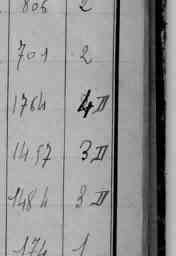 806 2
701 2
1764 4 II
1457 3 II
1484 3 II
174 1